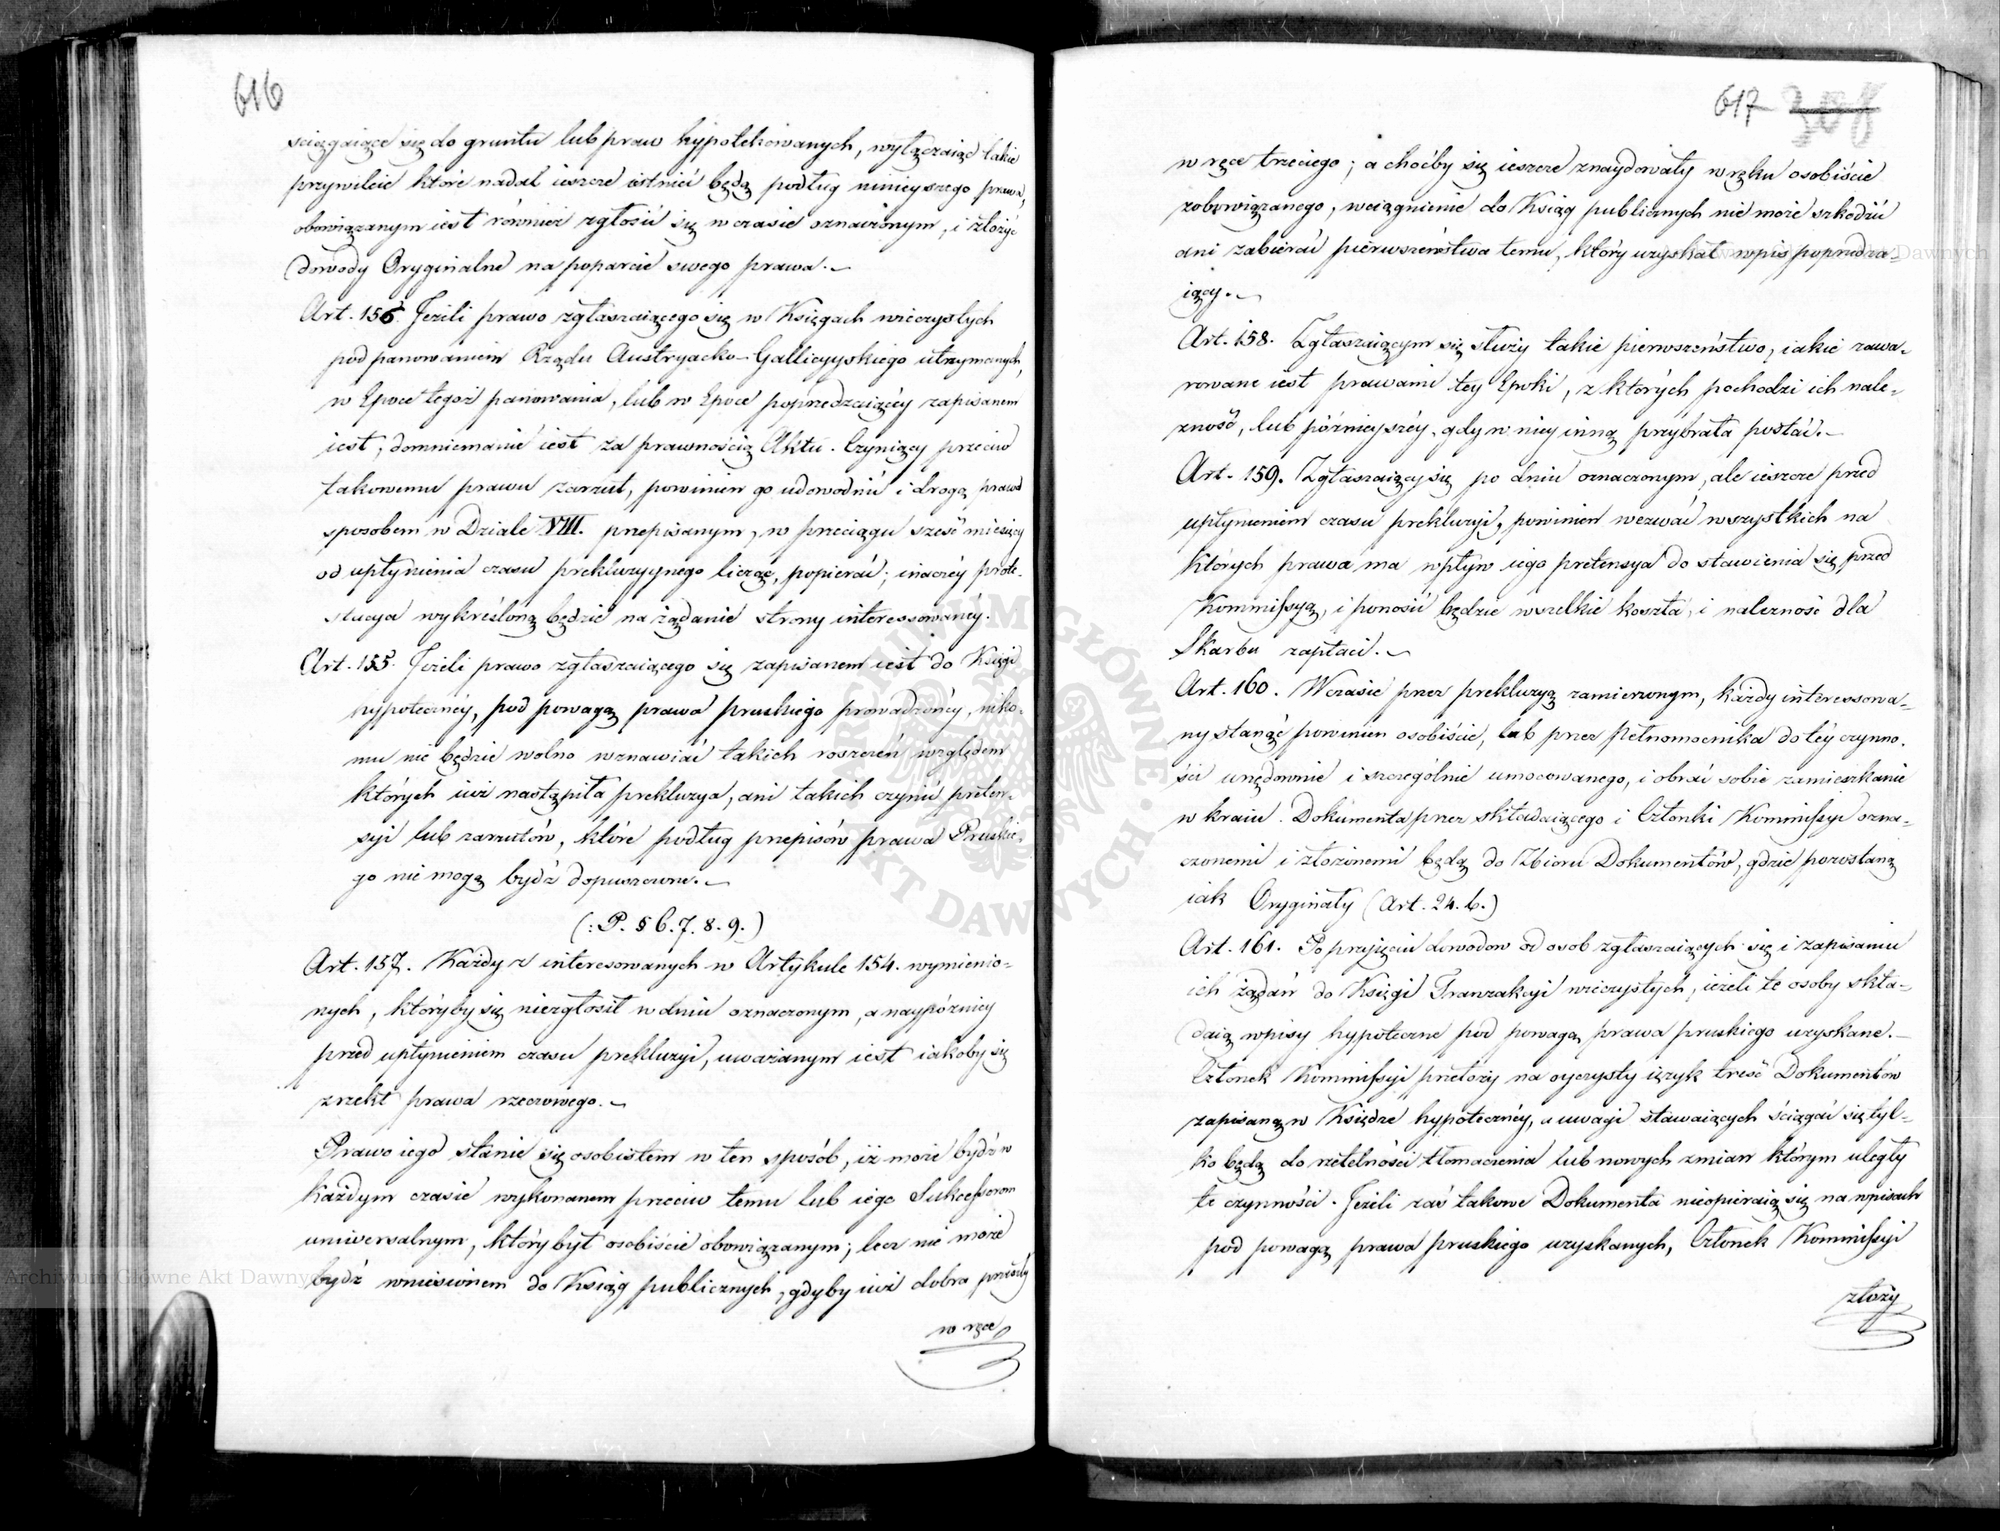 616
sciągaiące się do gruntu lub praw hypotekowanych, wyłączaiąc takie
przywileie które nadal ieszcze istnieć będą podług ninieyszego prawa,
obowiązanym iest również zgłosić się w czasie oznaczonym, i złożyć
dowody Oryginalne na poparcie swego prawa.
Art. 156. Jeżeli prawo zgłaszaiącego się w Księgach wieczystych
pod panowaniem Rządu Austryacko-Gallicyyskiego utrzymanych,
w Epoce tegoż panowania, lub w Epoce poprzedzaiącéy zapisanem
iest, domniemanie iest za prawnością Aktu. Czyniący przeciw
takowemu prawu zarzut, powinien go udowodnić i drogą prawa
sposobem w Dziale VIII. przepisanym, w przeciągu sześć miesięcy
od upłynienia czasu prekluzyynego licząc, popierać; inaczéy prote-
stacya wykreśloną będzie na żądanie strony interessowanéy.
Art. 155. Jeżeli prawo zgłaszaiącego się zapisanem iest do Księgi
hypotecznéy, pod powagą prawa pruskiego prowadzonéy, niko-
mu nie będzie wolno wznawiać takich roszczeń względem
których iuż nastąpiła prekluzya, ani takich czynić preten-
syi lub zarzutów, które podług przepisów prawa Pruskie-
go nie mogą bydź dopuszczone.
(: P. § 6. 7. 8. 9.)
Art. 157. Każdy z interesowanych w Artykule 154. wymienio-
nych, któryby się niezgłosił w dniu oznaczonym, a naypóźniéy
przed upłynieniem czasu prekluzyi, uważanym iest iakoby się
zrzekł prawa rzeczowego.
Prawo iego stanie się osobistem w ten sposób, iż może bydź w
każdym czasie wykonanem przeciw temu lub iego Sukcessorom
uniwersalnym, który był osobiście obowiązanym; lecz nie może
bydź wniesionem do Ksiąg publicznych, gdyby iuż dobra przeszły
w ręce
617 308
w ręce trzeciego; a choćby się ieszcze znaydowały w ręku osobiście
zobowiązanego, wciągnienie do Ksiąg publicznych nie może szkodzić
ani zabierać pierwszeństwa temu, który uzyskał wpis poprzedza-
iący.
Art. 158. Zgłaszaiącym się służy takie pierwszeństwo, iakie zawa-
rowane iest prawami téy Epoki, z których pochodzi ich nale-
żność, lub późnieyszéy, gdy w niey inną przybrała postać.
Art. 159. Zgłaszaiący się po dniu oznaczonym, ale ieszcze przed
upłynieniem czasu prekluzyi, powinien wezwać wszystkich na
których prawa ma wpływ iego pretensya do stawienia się przed
Kommissyą, i ponosić będzie wszelkie koszta, i należność dla
Skarbu zapłaci.
Art. 160. W czasie przez prekluzyą zamierzonym, każdy interessowa-
ny stanąć powinien osobiście, lub przez Pełnomocnika do téy czynno-
ści urzędownie i szczególnie umocowanego, i obrać sobie zamieszkanie
w kraiu. Dokumenta przez składaiącego i Członki Kommissyi ozna-
czonemi i złożonemi będą do Zbioru Dokumentów, gdzie pozostaną
iak Oryginały (Art. 24. b.)
Art. 161. Po przyięciu dowodow od osob zgłaszaiących się i zapisaniu
ich żądań do Księgi Tranzakcyi wieczystych, ieżeli te osoby skła-
daią wpisy hypoteczne pod powagą prawa pruskiego uzyskane.
Członek Kommissyi przełoży na oyczysty ięzyk treść Dokumentów
zapisaną w Księdze hypotecznéy, a uwagi stawaiących ściągać się tyl-
ko będą do rzetelności tłomaczenia lub nowych zmian którym uległy
te czynności. Jeżeli zaś takowe Dokumenta nieopieraią się na wpisach
pod powagą prawa pruskiego uzyskanych, Członek Kommissyi
złoży
ARCHIWUM GŁÓWNE AKT DAWNYCH
Archiwum Główne Akt Dawnych